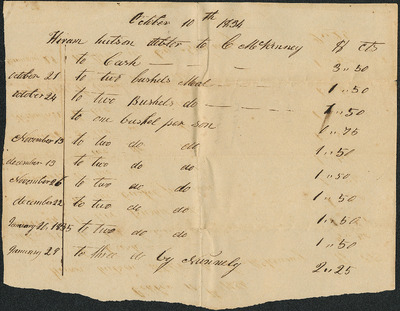 October 10th 1834
Hiram hutson debtor to C McKenney $ cts
to Cash 3 .. 50
October 21 to two bushels Meal 1 .. 50
October 24 to two Bushels do 1 .. 50
to one bushel per son 1 .. 75
November 13 to two do do 1 .. 50
december 13 to two do do 1 .. 50
November 26 to two do do 1 .. 50
december 22 to two do do 1 .. 50
January 21. 1835 to two do do 1 .. 50
January 29 to three do by Nunnely 2 .. 25